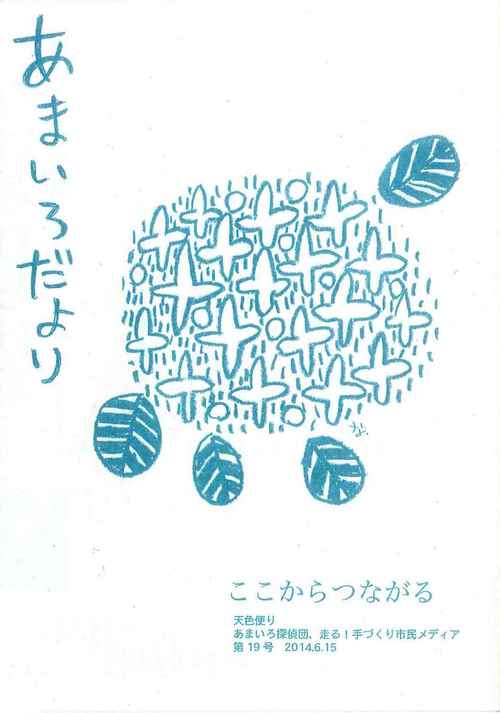 あまいろだより
な.
ここからつながる
天色便り
あまいろ探偵団、走る！手づくり市民メディア
第19号 2014.6.15